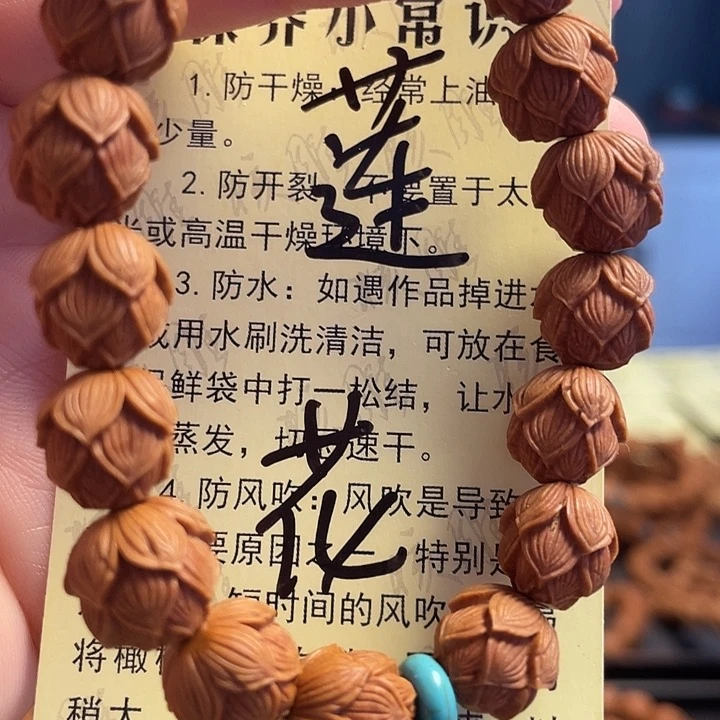 保养小常识
1. 防干燥：经常上油
少量。
2. 防开裂：不要置于太
光或高温干燥环境下。
3. 防水：如遇作品掉进
或用水刷洗清洁，可放在食
保鲜袋中打一松结，让水
蒸发，切忌速干。
4. 防风吹：风吹是导致
要原因之一，特别是
短时间的风吹
将橄榄
稍大
莲
花